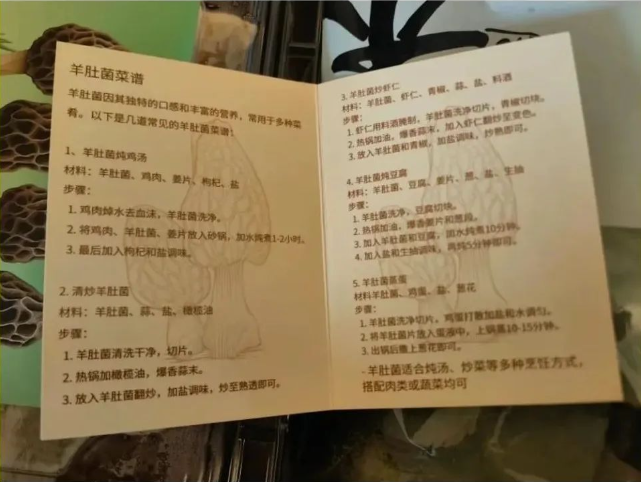 羊肚菌菜谱
羊肚菌因其独特的口感和丰富的营养，常用于多种菜
肴。以下是几道常见的羊肚菌菜谱：
1、羊肚菌炖鸡汤
材料：羊肚菌、鸡肉、姜片、枸杞、盐
步骤：
1. 鸡肉焯水去血沫，羊肚菌洗净。
2. 将鸡肉、羊肚菌、姜片放入砂锅，加水炖煮1-2小时。
3. 最后加入枸杞和盐调味。
2. 清炒羊肚菌
材料：羊肚菌、蒜、盐、橄榄油
步骤：
1. 羊肚菌清洗干净，切片。
2. 热锅加橄榄油，爆香蒜末。
3. 放入羊肚菌翻炒，加盐调味，炒至熟透即可。
3. 羊肚菌炒虾仁
材料：羊肚菌、虾仁、青椒、蒜、盐、料酒
步骤：
1. 虾仁用料酒腌制，羊肚菌洗净切片，青椒切块。
2. 热锅加油，爆香蒜末，加入虾仁翻炒至变色。
3. 放入羊肚菌和青椒，加盐调味，炒熟即可。
4. 羊肚菌炖豆腐
材料：羊肚菌、豆腐、姜片、葱、盐、生抽
步骤：
1. 羊肚菌洗净，豆腐切块。
2. 热锅加油，爆香姜片和葱段。
3. 加入羊肚菌和豆腐，加水炖煮10分钟。
4. 加盐和生抽调味，再炖5分钟即可。
5. 羊肚菌蒸蛋
材料羊肚菌、鸡蛋、盐、葱花
步骤：
1. 羊肚菌洗净切片，鸡蛋打散加盐和水调匀。
2. 将羊肚菌片放入蛋液中，上锅蒸10-15分钟。
3. 出锅后撒上葱花即可。
- 羊肚菌适合炖汤、炒菜等多种烹饪方式，
搭配肉类或蔬菜均可